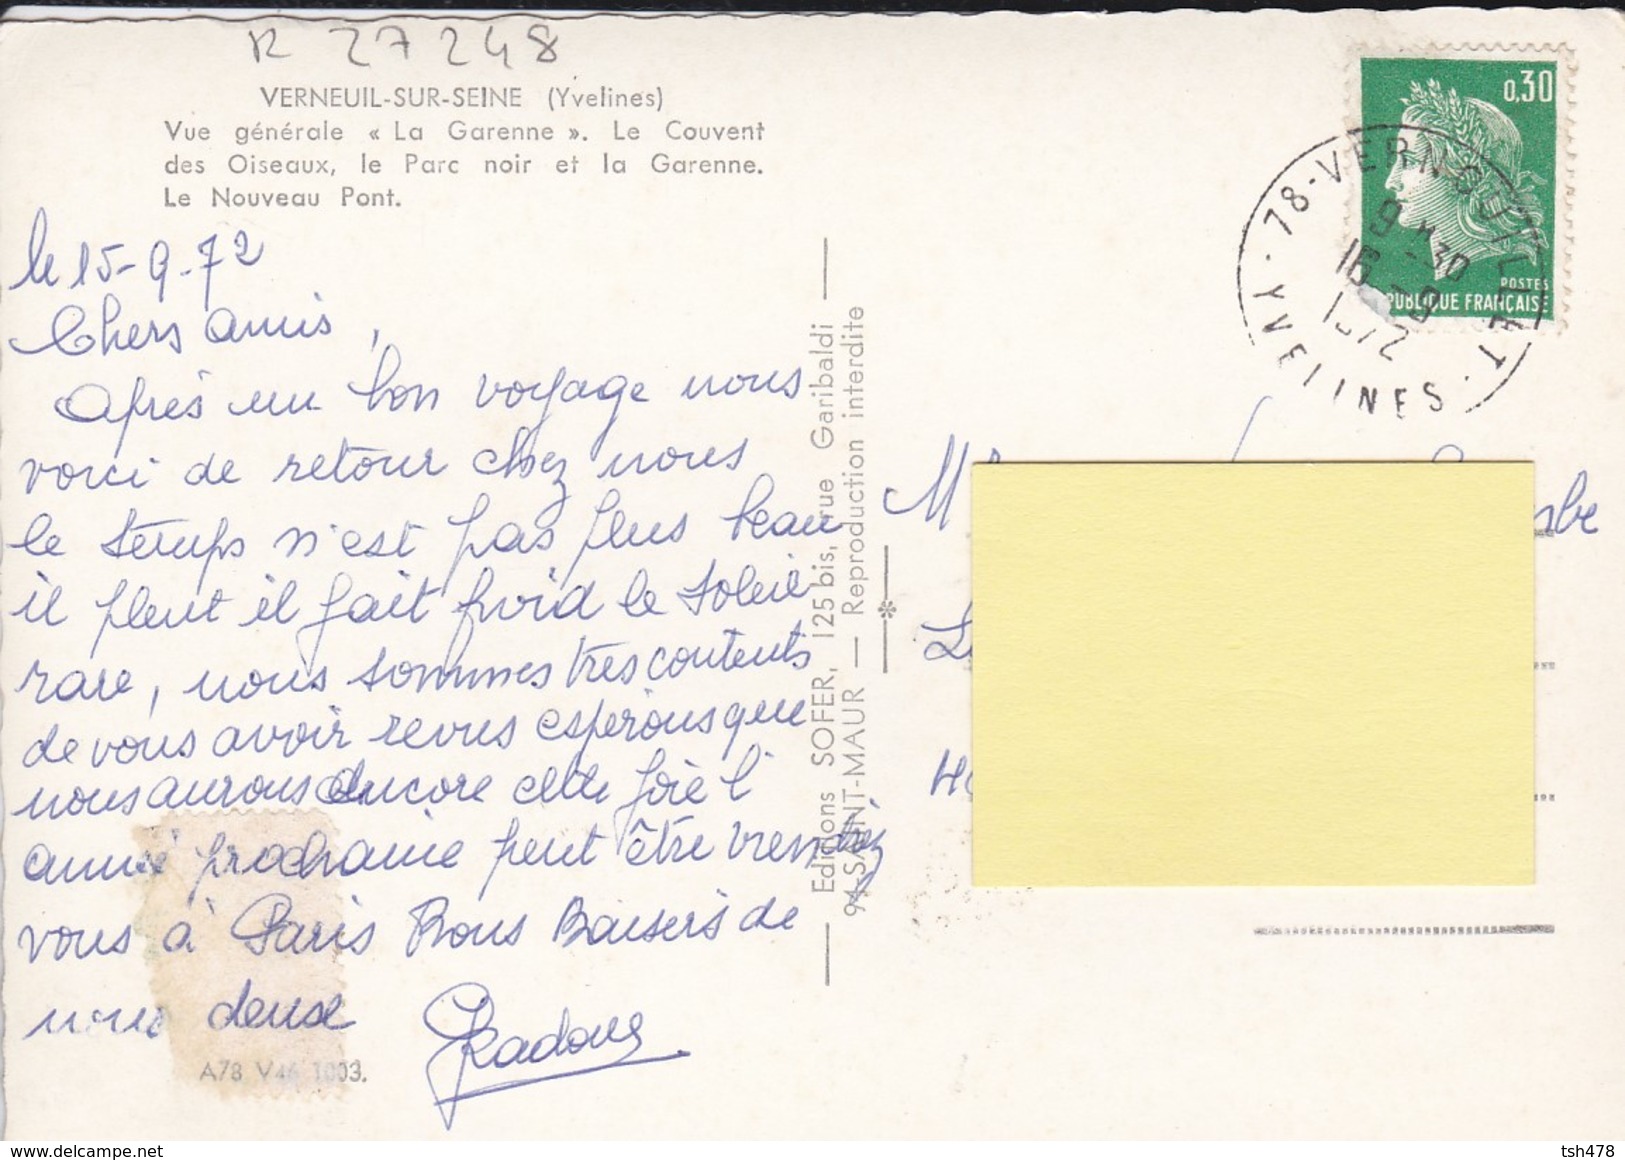 R 27248
VERNEUIL-SUR-SEINE (Yvelines)
Vue générale « La Garenne ». Le Couvent
des Oiseaux, le Parc noir et la Garenne.
Le Nouveau Pont.
le 15-9-72
Chers amis,
Après un bon voyage nous
voici de retour chez nous
le temps n'est pas plus beau
il pleut il fait froid le soleil
rare, nous sommes très contents
de vous avoir revus esperons que
nous aurons encore cette joie l'
année prochaine peut être viendrez
vous à Paris Bons Baisers de
nous deux
A78 V46 1003.
Editions SOFER, 125 bis, rue Garibaldi
94-SAINT-MAUR — Reproduction interdite
0,30
POSTES
PUBLIQUE FRANÇAISE
78-VERNOUILLET
YVELINES
9H30
16-9
1972
M
tsh478